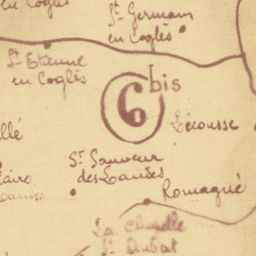 en Cogles
St Germain
en Coglès
St Etienne
en Coglès
6 bis
Lécousse
llé
St Sauveur
des Landes
Romagné
La Chapelle
St Aubert